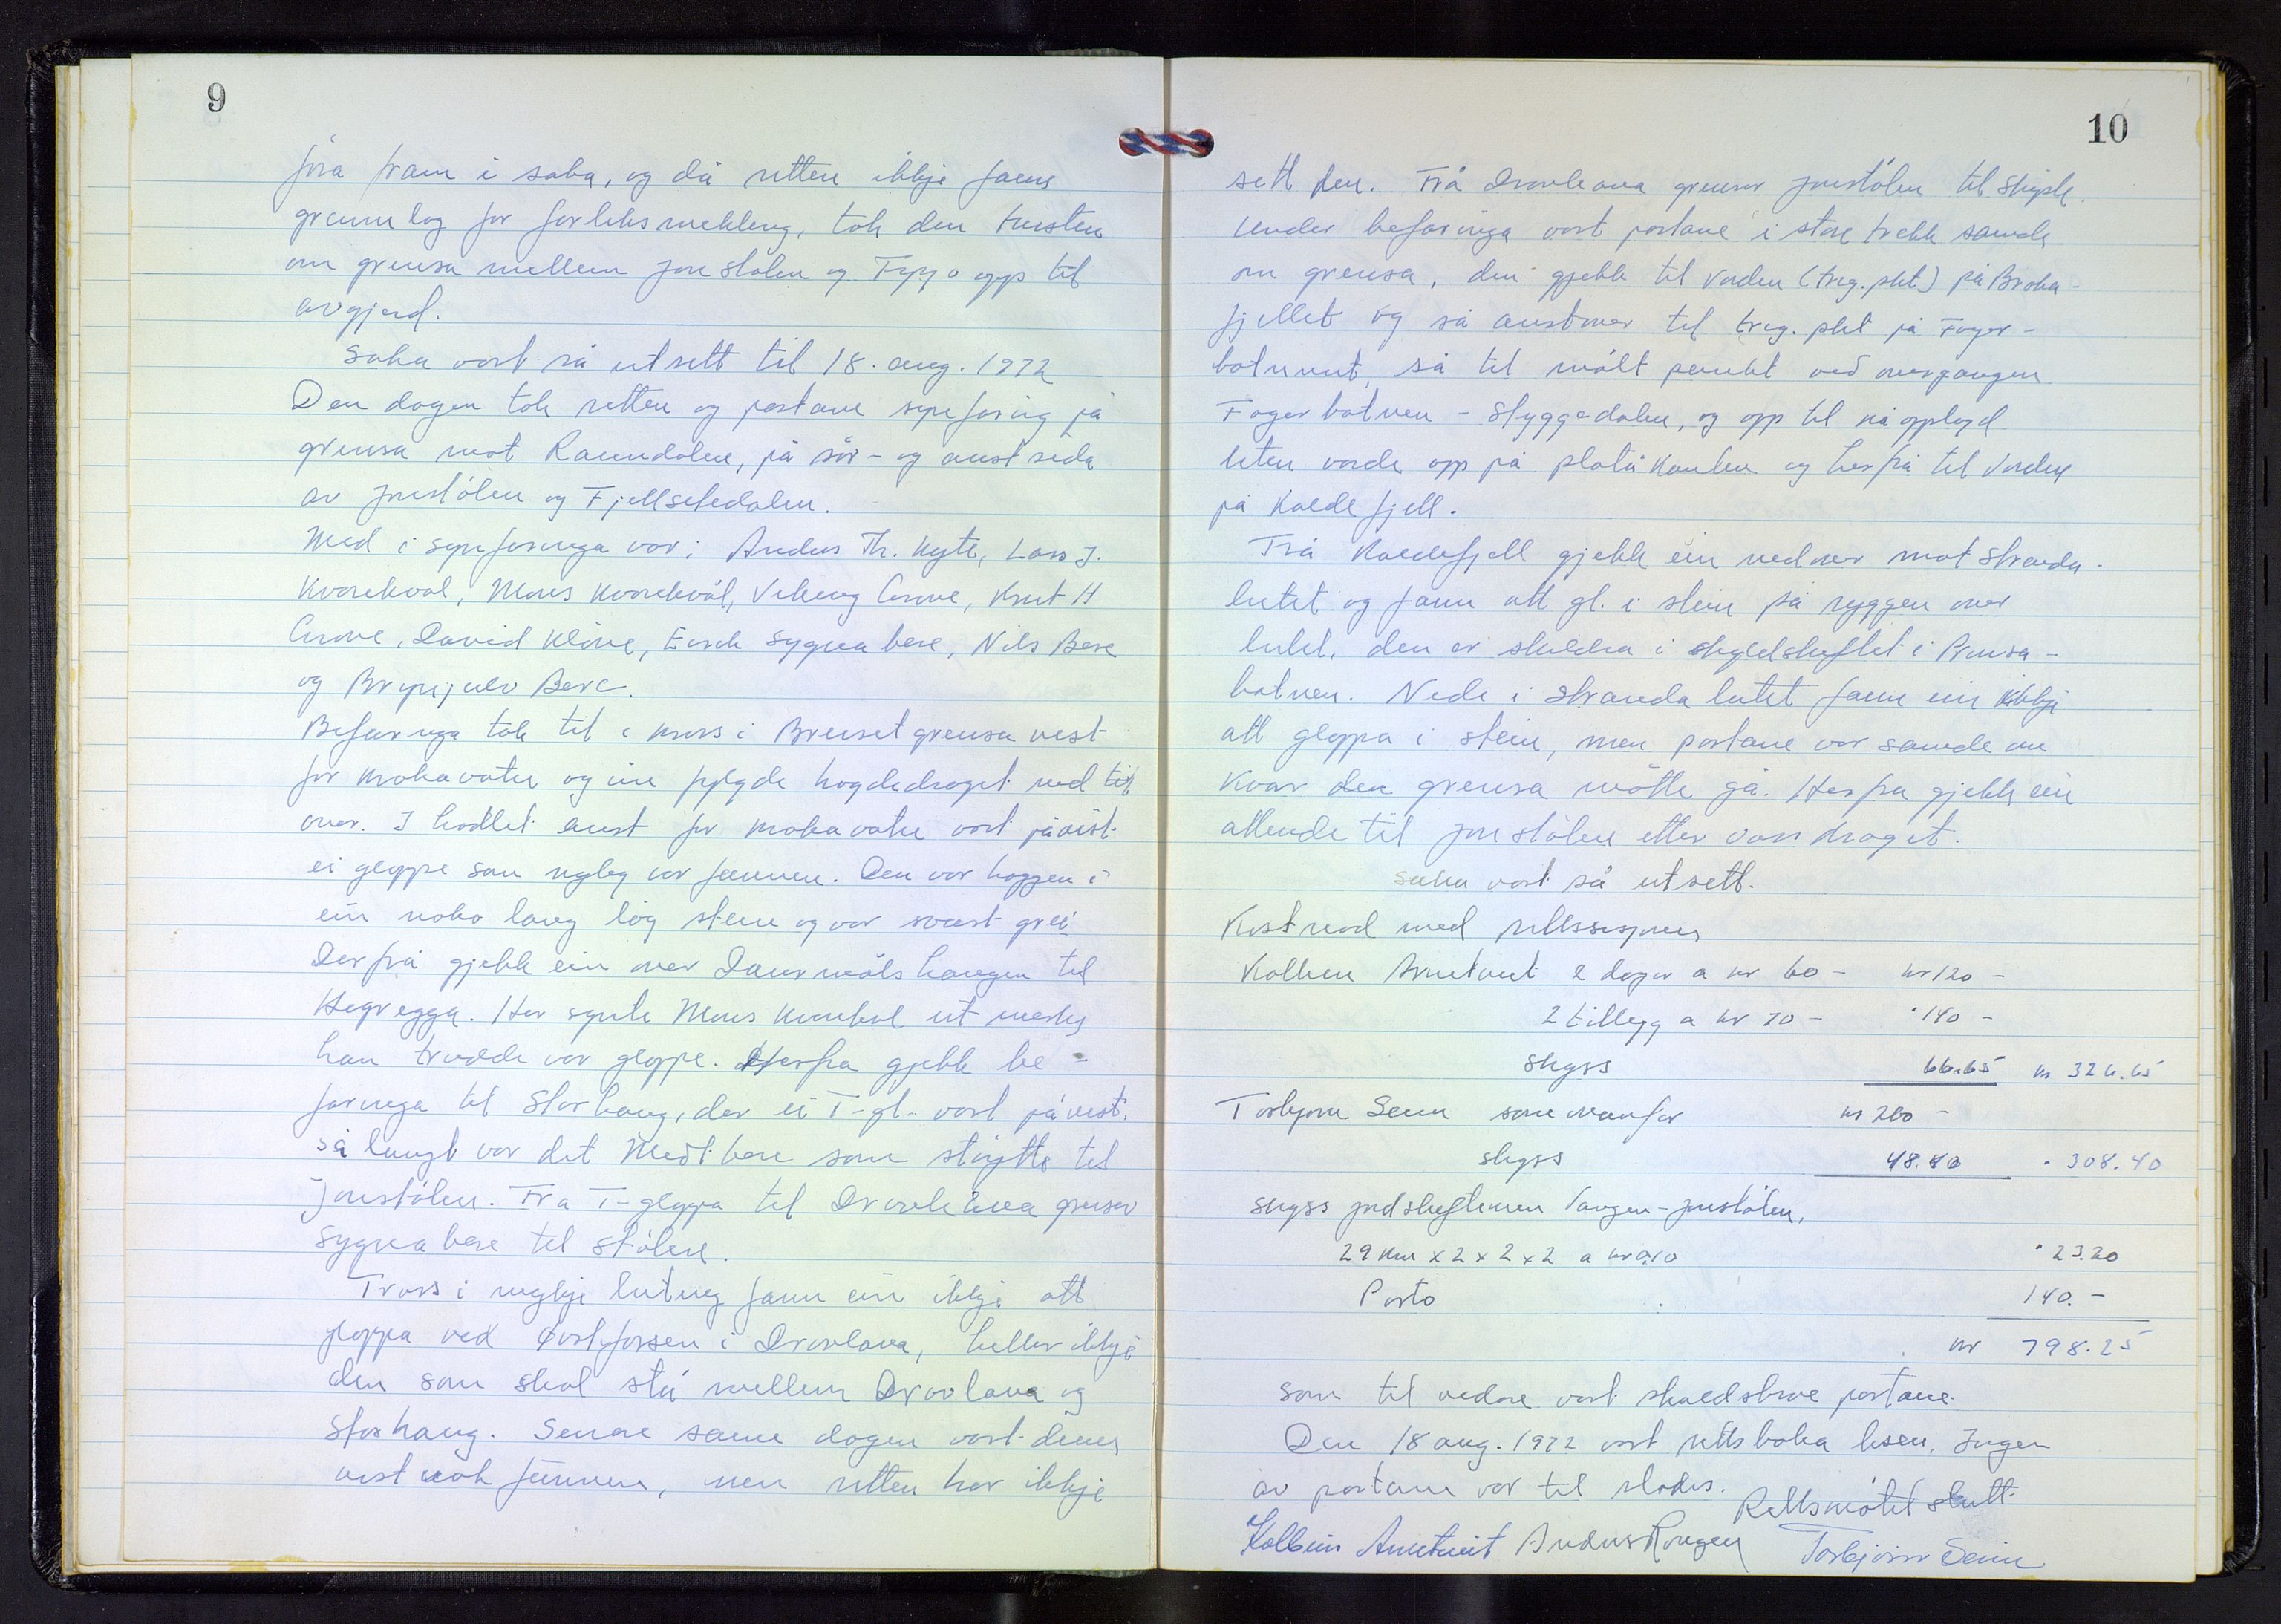 9
föra fram i saka, og då retten ikkje fann
grunnlag for forliksmekling, tok den tvisten
om grensa mellem Jonstölen og opp til
avgjerd.
Saka vart så utsett til 18. aug. 1972
Den dagen tok retten og partane synfaring på
grensa mot Raundalen, på sör- og austsida
av Jonstölen og Fjellsetedalen.
Med i synfaringa var: Anders Th. Kyte, Lars J.
Kvarekval, Mons Kvarekvål, Viking Grove, Knut H
Grove, David Kløve, Eirik Sygnabere, Nils Bere
og Brynjulv Bere.
Befaringa tok til i kross i Brensetgrensa vest
for Krokavatn og ein fylgde högdedraget ned til
over. I hodlet aust for Krokavatn vart påvist
ei gloppe som nyleg var funnen. Den var hoggen i
ein noko lang låg stein og var svært grei
Derfrå gjekk ein over Daurmålshaugen til
Hegregga. Her synte Mons Kvarekval ut merke
han trudde var gloppe. Herfra gjekk be-
faringa til Storhaug, der ei T-gl. vart påvist.
Så langt var det Medbere som støytte til
Jonstölen. Fra T-gloppa til Dravlaua grensar
Sygnabere til stölen.
Tross i mykje leiting fann ein ikkje att
gloppa ved fossen i Dravlaua, heller ikkje
den som skal stå mellem Dravlaua og
Storhaug. Senare same dagen vart denne
visst nok funnen, men retten har ikkje
10
sett den. Frå Dravlaua grensar Jonstölen til
Under befaringa vart partane i store trekk samde
om grensa, den gjekk til varden (trig.pkt) på Broka-
fjellet og så austover til trig. pkt på Fager-
botnnut, så til målt punkt ved overgangen
Fagerbotnen - Styggedalen, og opp til ein opplagd
liten varde opp på platåkanten og herfrå til varden
på Kaldefjell.
Frå Kaldefjell gjekk ein nedover mot Stranda-
lutet og fann att gl. i stein på ryggen over
lutet, den er skildra i skyldskiftet i
botnen. Nede i Strandalutet fann ein ikkje
att gloppa i stein, men partane var samde om
kvar den grensa måtte gå. Herfra gjekk ein
attende til Jonstölen etter vassdraget.
Saka vart så utsett.
Kostnad med rettssesjonen
Kolbein Arnetveit 2 dagar a kr 60 - kr 120 -
2 tillegg a kr 70 - " 140 -
skyss 66.65 kr 326.65
Torbjørn Seim som ovanfor kr 260 -
skyss 48.40 " 308.40
Skyss jordskiftemenn Vangen - Jonstölen,
29 km x 2 x 2 x 2 a kr 0.10 " 23.20
Porto 140.-
kr 798.25
som til vedare vart skuldskrive partane.
Den 18 aug. 1972 vart rettsboka lesen. Ingen
av partane var til stades. Rettsmötet slutt
Kolbein Arnetveit Anders Rongen Torbjørn Seim